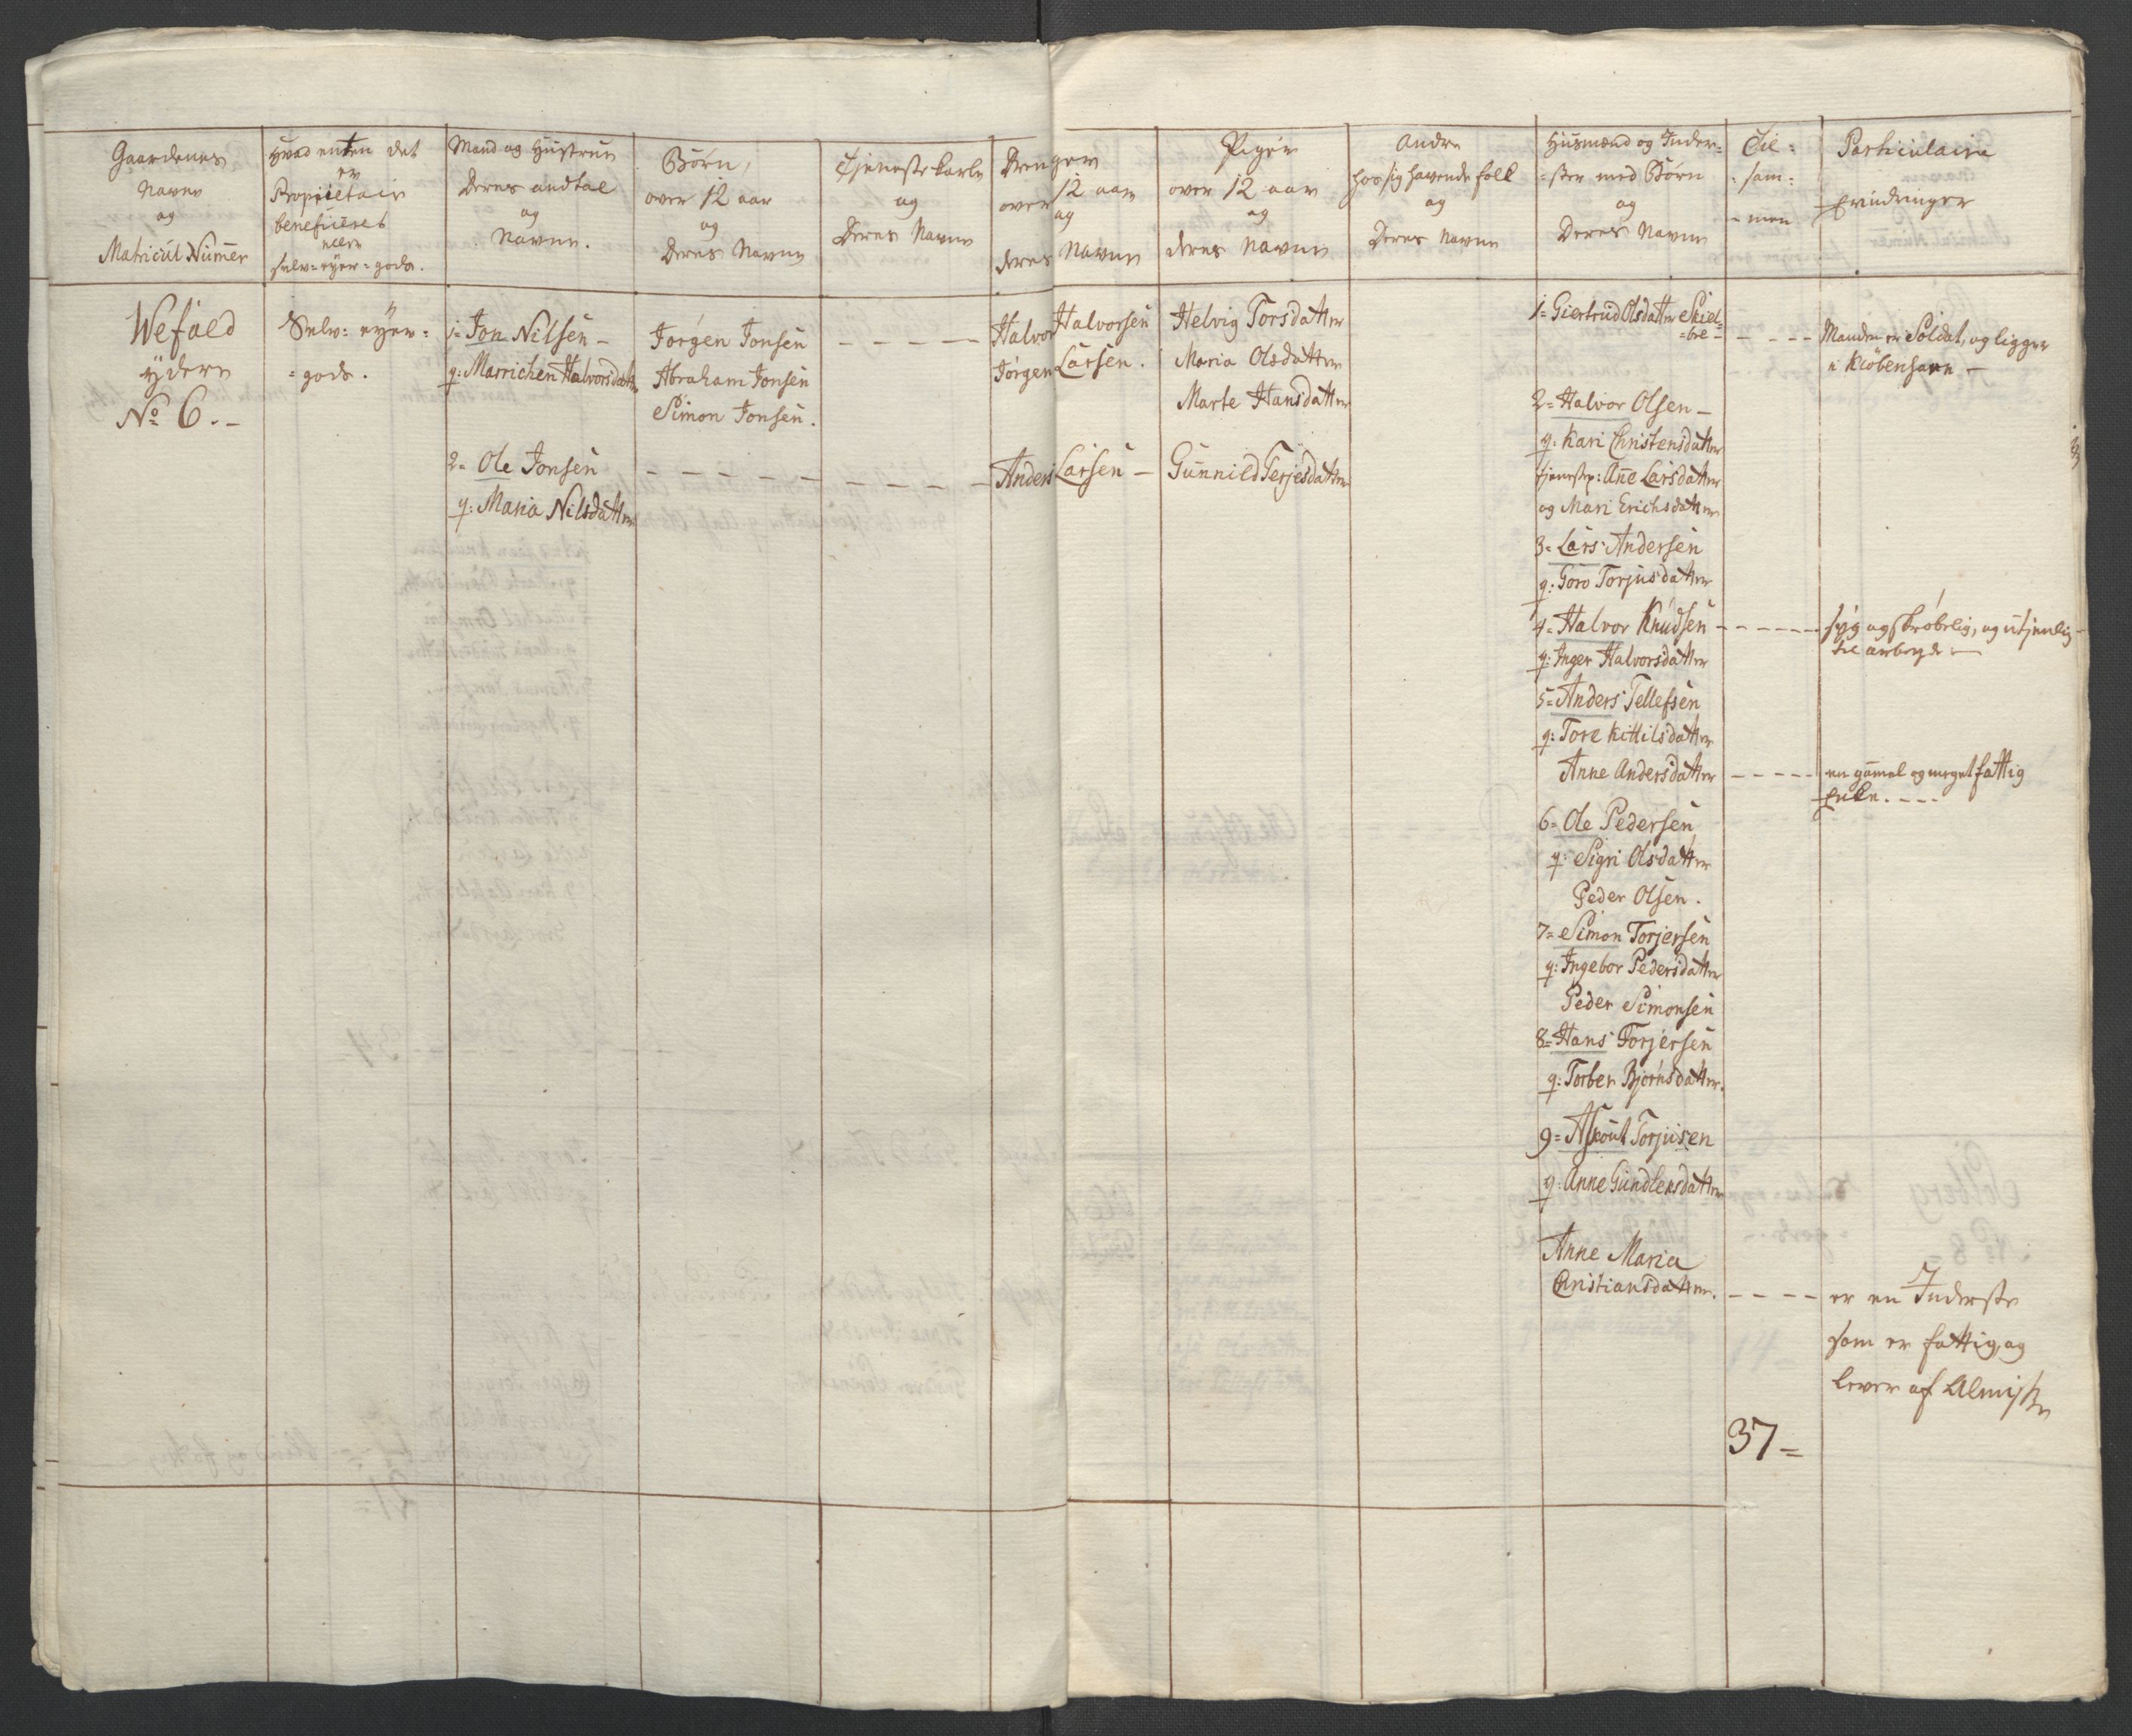 Gaardenes
Navne
og
Matricül Nümer
Hvad enten det
er
Proprietair
beneficeret
eller
selv-eyer-gods.
Mand og Hüstrue
Deres andtal
og
Navne.
Børn,
over 12 aar
og
Deres Navne
Tjeneste karle
og
Deres Navne
Drenger
over 12 aar
og
deres Navne
Piger
over 12 aar
og
deres Navne
Andre
hos sig havende folk
og
Deres Navne
Hüsmænd og Inder-
-ster med Børn
og
Deres Navne
Til-
-sam-
-men
Particulaire
Erindringer
Wefald
ydere
No 6.
Selv-eyer-
-gods.
1- Jon Nilsen
q: Marrichen Halvorsdatter
2- Ole Jonsen
q: Maria Nilsdatter
Jørgen Jonsen
Abraham Jonsen
Simon Jonsen.
Halvor Halvorsen
Jørgen Larsen.
Anders Larsen
Helvig Torsdatter
Maria Olsdatter
Marte Hansdatter
Gunnild Terjesdatter
1- Giertrud Olsdatter Skiel-
-bre-
Manden er Soldat, og ligger
i Kiöbenhavn
2- Halvor Olsen
q: Kari Christensdatter
tjenestep: Ane Larsdatter
og Mari Erichsdatter
3- Lars Andersen
q: Goro Torjusdatter
4- Halvor Knudsen
syg og skrøbelig, og utjenlig
til arbeyde
q: Inger Halvorsdatter
5- Anders Tellefsen
q: Tore Kittilsdatter
Anne Andersdatter
en gamel og meget fattig
Enke.
6- Ole Pedersen
q: Sigri Olsdatter
Peder Olsen.
7- Simon Torjersen
q: Ingebor Pedersdatter
Peder Simonsen
8- Hans Torjersen
q: Torber Bjørnsdatter.
9- Aslout Torjusen
q: Anne Gundlersdatter
Anne Maria
Christiansdatter.
er en Inderste
som er fattig, og
lever af Almisse
37